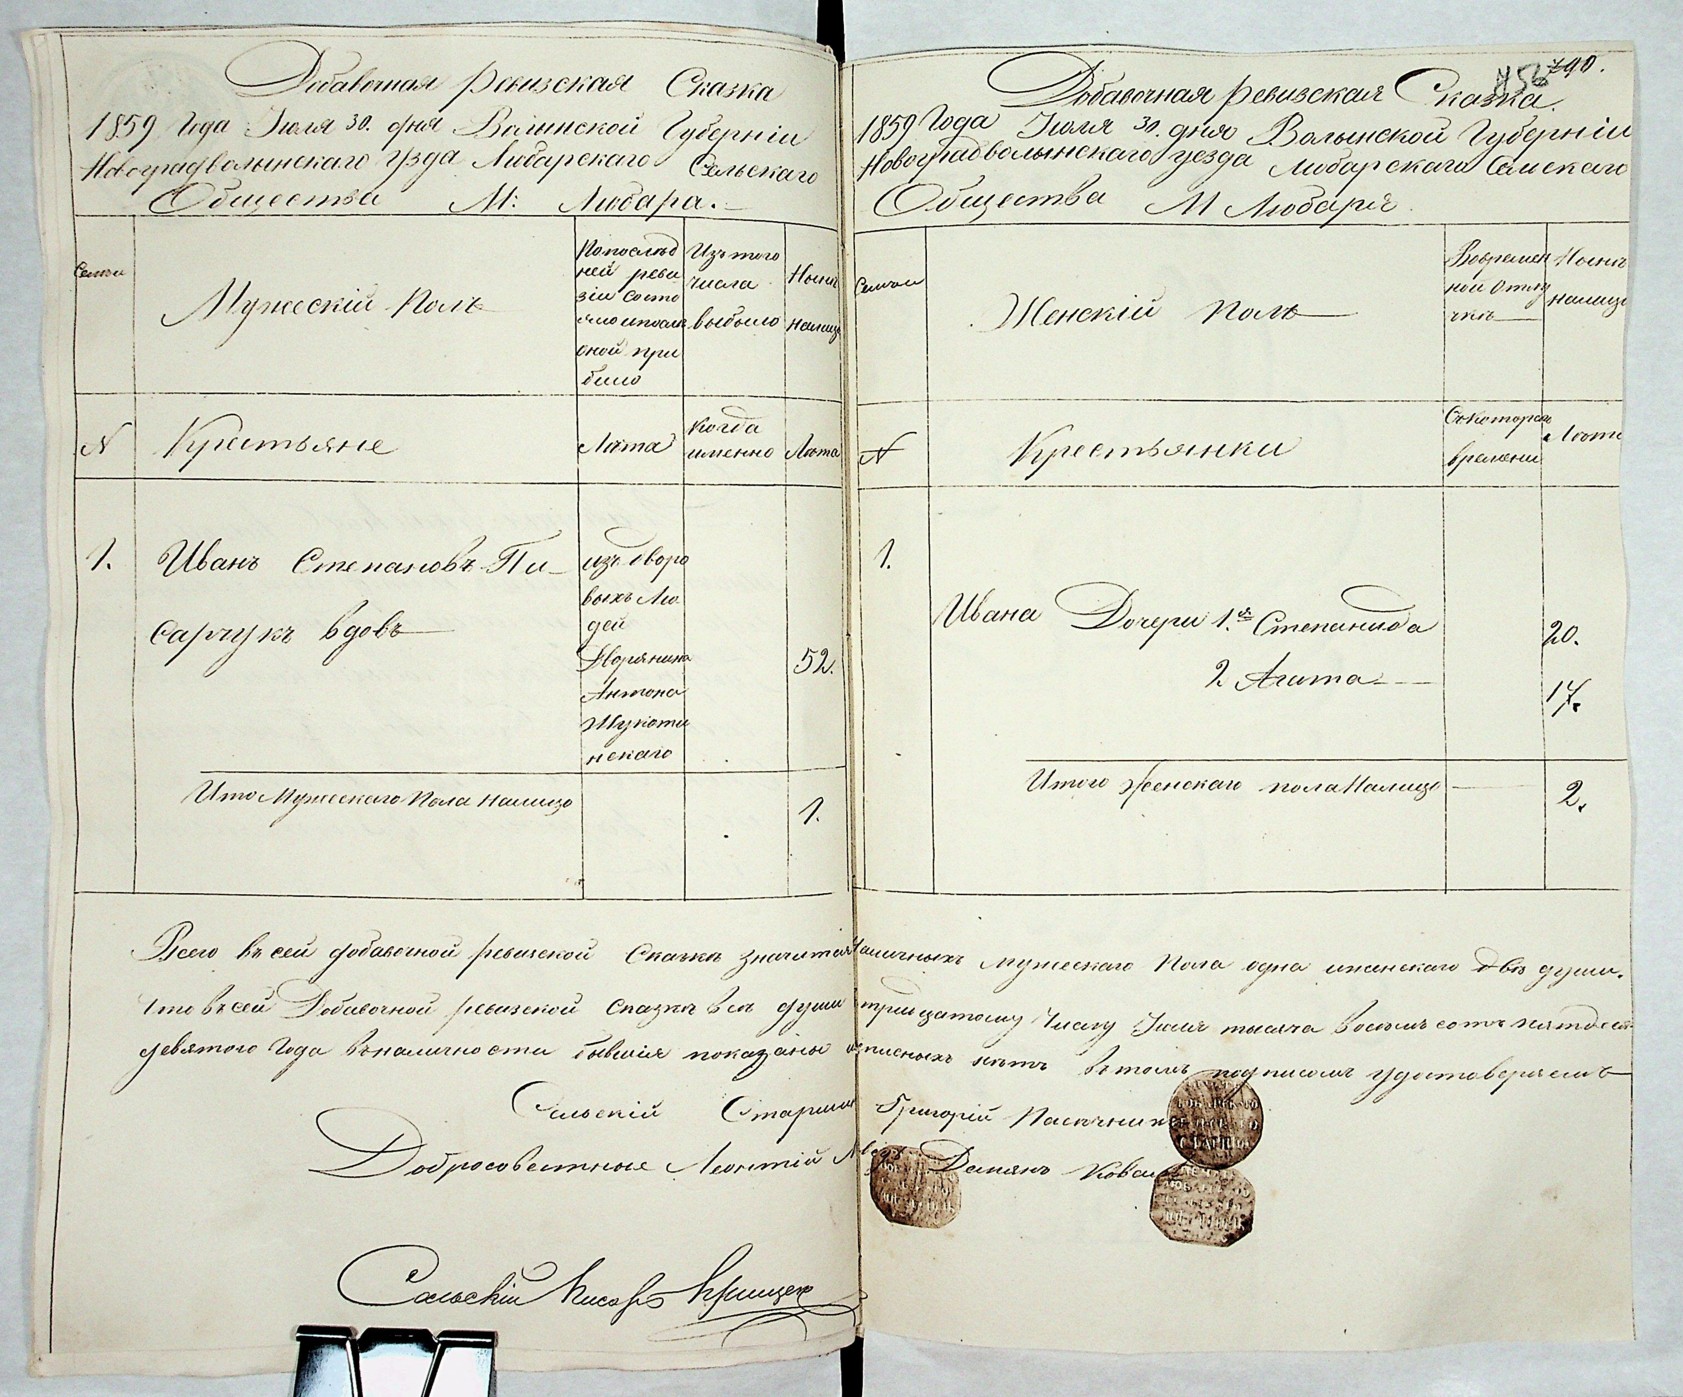 Добавочная ревизская Сказка
1859 Года Іюля 30. дня Волынской Губерніи
Новоградволынскаго Уезда Любарскаго Сельскаго
Общества М: Любара.
Семьи
Мужескій Полъ
По послед
ней реви
зіи состо
яло и после
оной при
было
Изъ того
числа
выбыло
Ныне
налицо
N
Крестьяне
Лѣта
Когда
именно
Лѣта
1.
Иванъ Степановъ Пи
сарчукъ вдовъ
изъ дворо
выхъ Лю
дей
Дворянина
Антона
нскаго
52.
Итого Мужескаго Пола налицо
1.
790.
456
Добавочная ревизская Сказка.
1859 Года Іюля 30. дня Волынской Губерніи
Новоградволынскаго уезда Любарскаго Сельскаго
Общества М Любара
Семьи
Женскій Полъ
Во времен
ной отлу
чкѣ
Ныне
налицо
N
Крестьянки
Съ котораго
времени
Лѣта
1.
Ивана Дочери 1.я Степанида
20.
2 Агита
17.
Итого Женскаго пола Налицо
2.
Всего въ сей добавочной ревизской Сказкѣ значится наличныхъ мужескаго Пола одна и женскаго двѣ души.
Что въ сей Добавочной ревизской Сказкѣ все души тридцатому Числу Іюля тысяча восемь сотъ пятдесят
девятого Года въ наличности бывшія показаны и прописныхъ нетъ въ томъ подписомъ удостоверяемъ
Сельскій Старшина Григорій Пасечникъ
Добросовестные Леонтій Демянъ Коваль
Сельскій Писарь